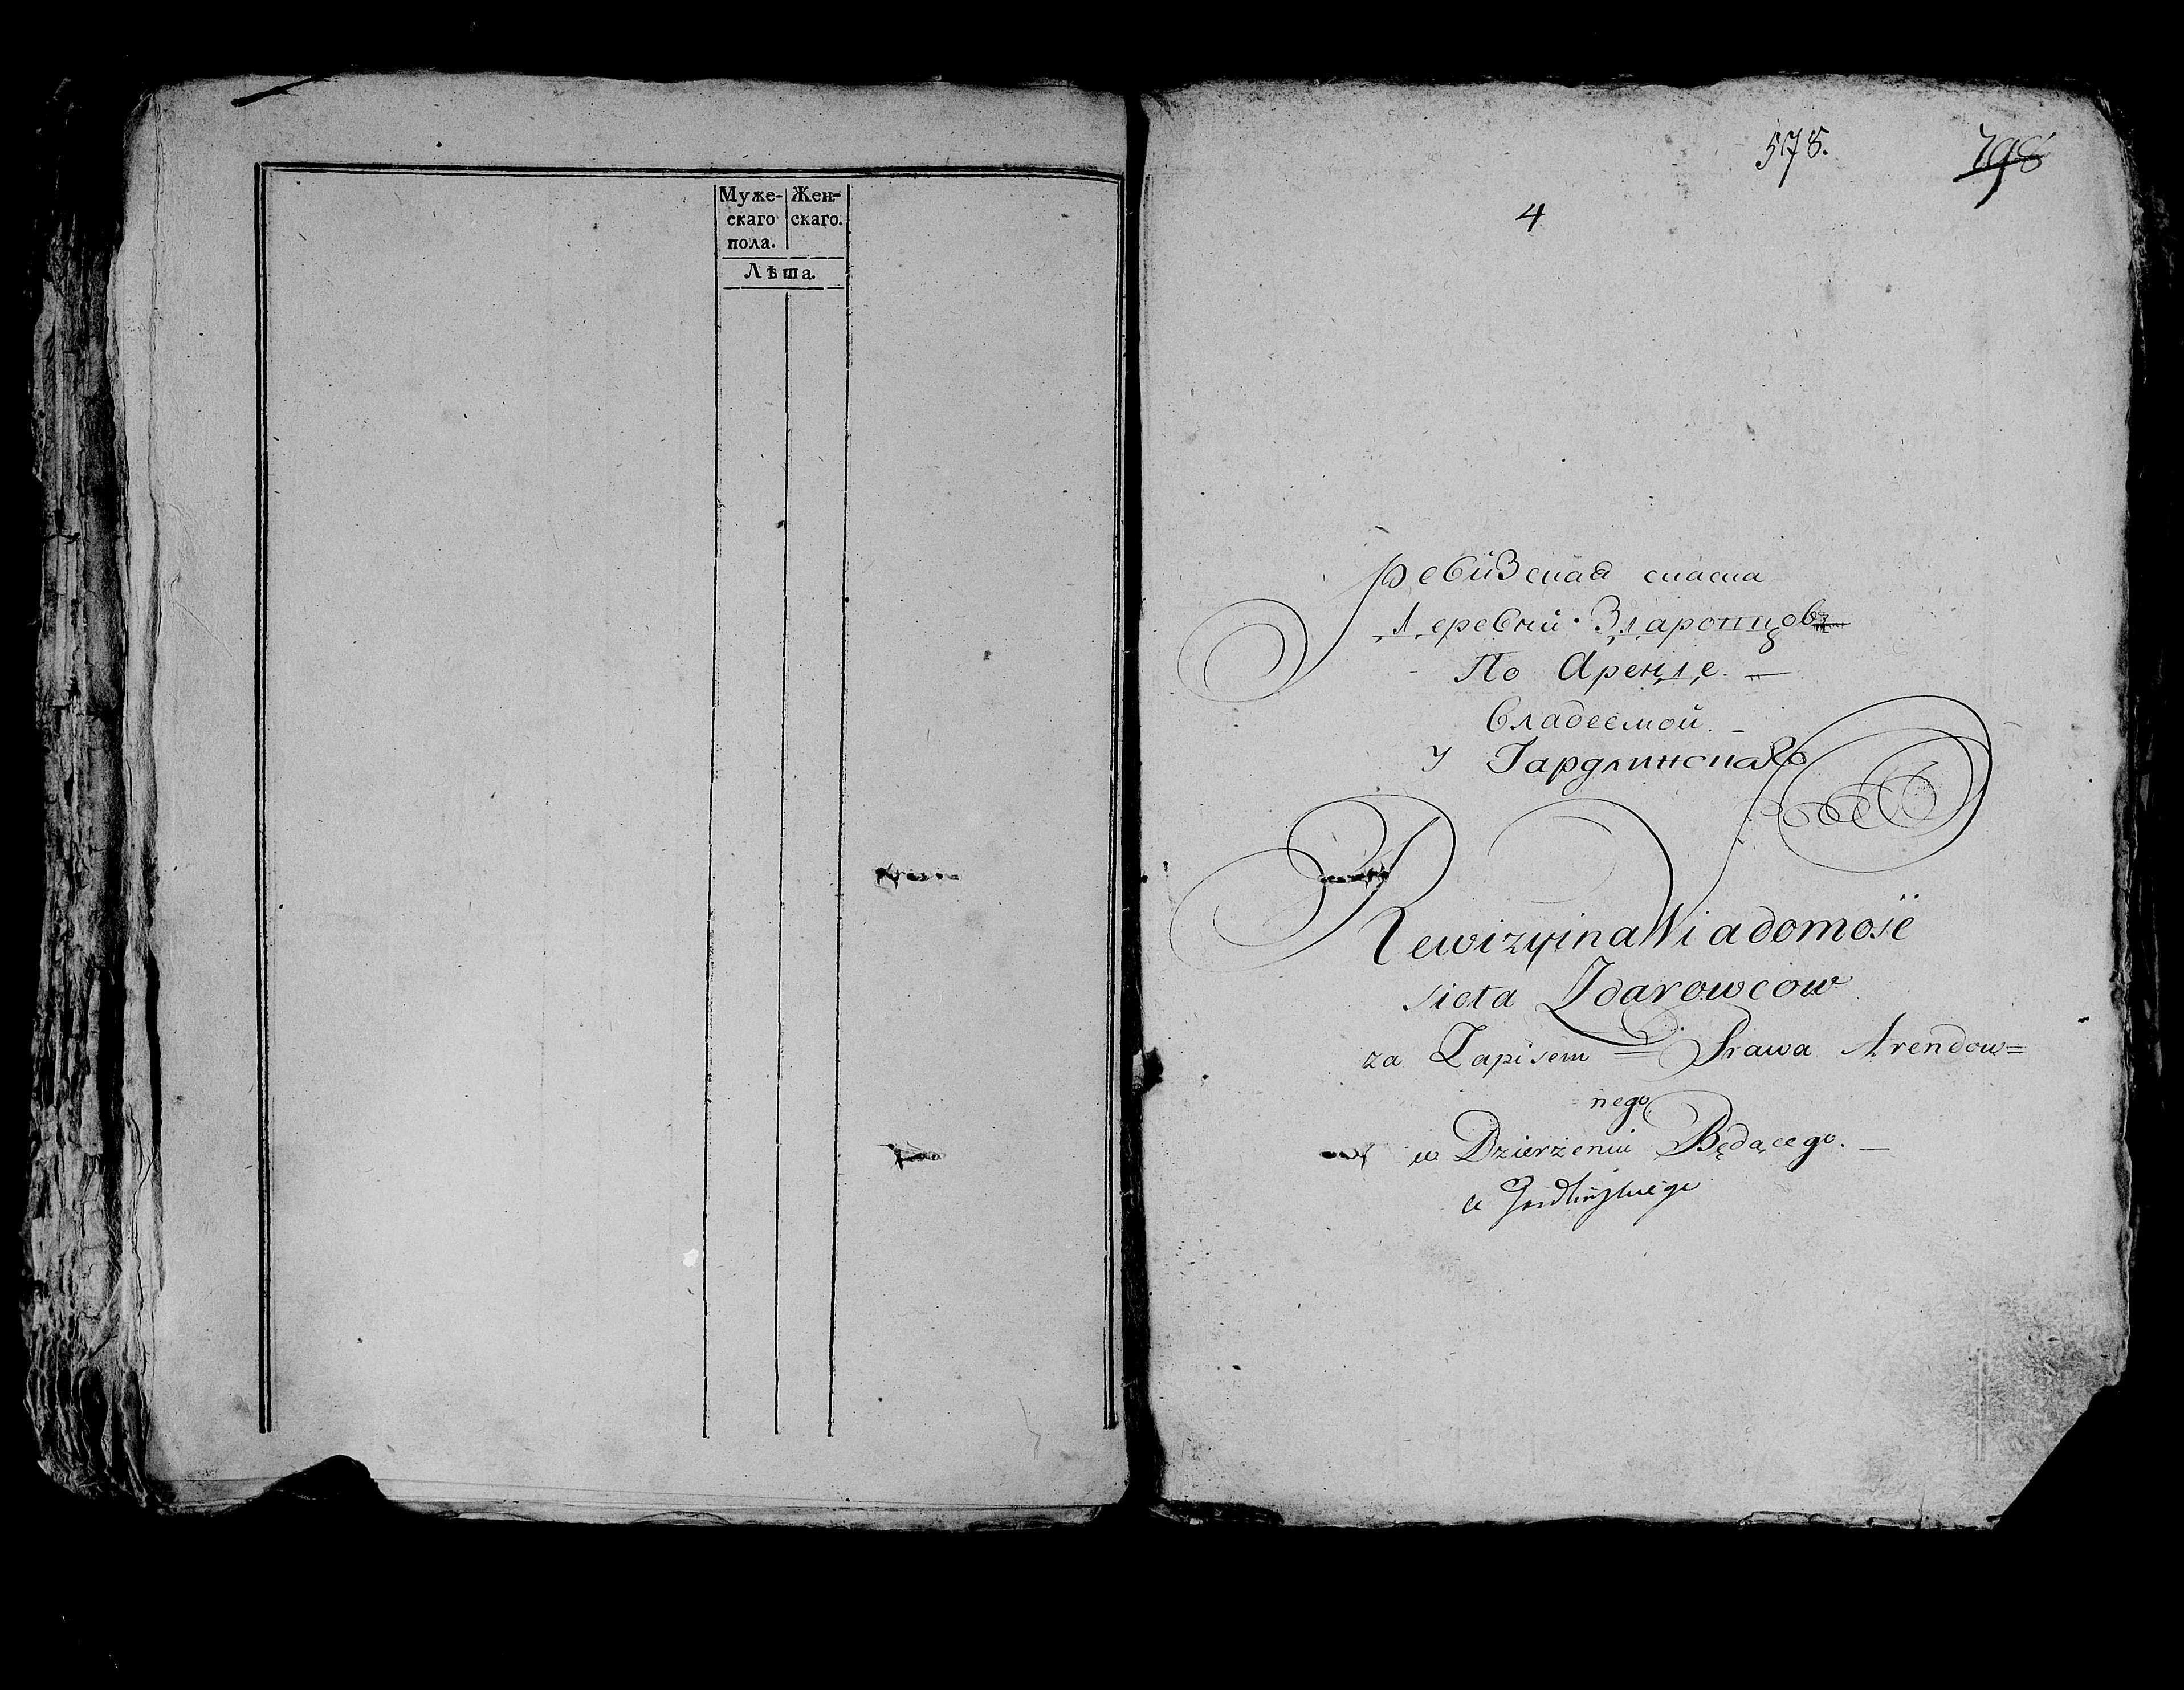 Муже- Жен-
скаго скаго.
пола.
Лѣта.
578. 798
4
Ревизская сказка
Деревни Здаровцовъ
По Аренде.
владеемой.
У Гардлинскаго
Rewizyina Wiadomość
sioła Zdarowcow
za Zapisem = Prawa Arendow=
nego
w Dzierzeniu Będącego. —